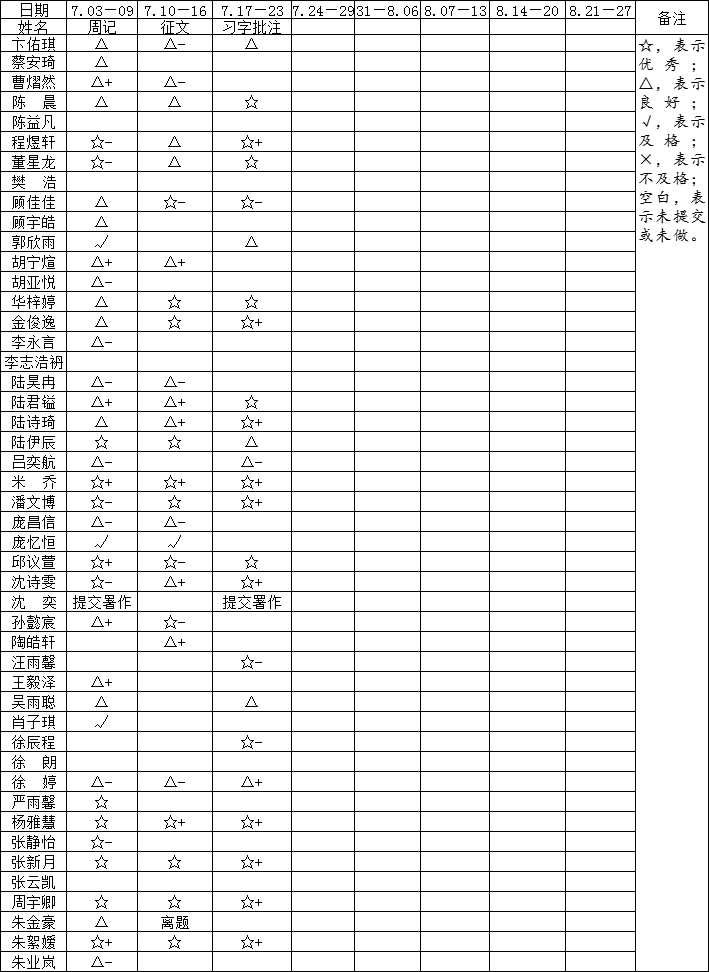 日期 7.03—09 7.10—16 7.17—23 7.24—29 31—8.06 8.07—13 8.14—20 8.21—27 备注
姓名 周记 征文 习字批注
卞佑琪 △ △- △
蔡安琦 △
曹熠然 △+ △-
陈 晨 △ △ ☆
陈益凡
程煜轩 ☆- △ ☆+
董星龙 ☆- △ ☆
樊 浩
顾佳佳 △ ☆- ☆-
顾宇皓 △
郭欣雨 √ △
胡宁煊 △+ △+
胡亚悦 △-
华梓婷 △ ☆ ☆
金俊逸 △ ☆ ☆+
李永言 △-
李志浩袇
陆昊冉 △- △-
陆君镒 △+ △+ ☆
陆诗琦 △ △+ ☆+
陆伊辰 ☆ ☆ △
吕奕航 △- △-
米 乔 ☆+ ☆+ ☆+
潘文博 ☆- ☆ ☆+
庞昌信 △- △-
庞忆恒 √ √
邱议萱 ☆+ ☆- ☆
沈诗雯 ☆- △+ ☆+
沈 奕 提交署作 提交署作
孙懿宸 △+ ☆-
陶皓轩 △+
汪雨馨 ☆-
王毅泽 △+
吴雨聪 △ △
肖子琪 √
徐辰程 ☆-
徐 朗
徐 婷 △- △- △+
严雨馨 ☆
杨雅慧 ☆ ☆+ ☆+
张静怡 ☆-
张新月 ☆ ☆ ☆+
张云凯
周宇卿 ☆ ☆ ☆+
朱金豪 △ 离题
朱絮媛 ☆+ ☆ ☆+
朱业岚 △-
☆，表示
优秀；
△，表示
良好；
√，表示
及格；
×，表示
不及格；
空白，表
示未提交
或未做。